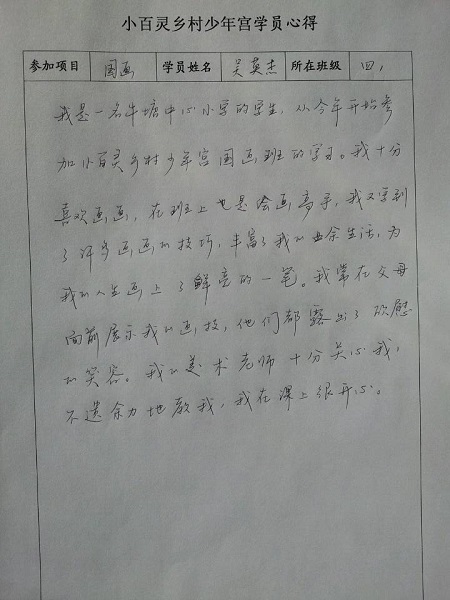 小百灵乡村少年宫学员心得
参加项目 国画 学员姓名 吴英杰 所在班级 四1
我是一名牛塘中心小学的学生，从今年开始参
加小百灵乡村少年宫国画班的学习。我十分
喜欢画画，在班上也是绘画高手，我又学到
了许多画画的技巧，丰富了我的业余生活，为
我的人生画上了鲜亮的一笔。我常在父母
面前展示我的画技，他们都露出了欣慰
的笑容。我的美术老师十分关心我，
不遗余力地教我，我在课上很开心。